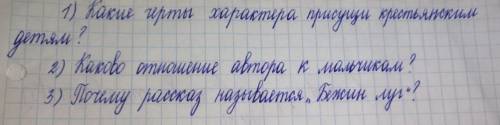 1) Какие черты характера присущи крестьянским
детям?
2) Каково отношение автора к мальчикам?
3) Почему рассказ называется „Бежин луг"?